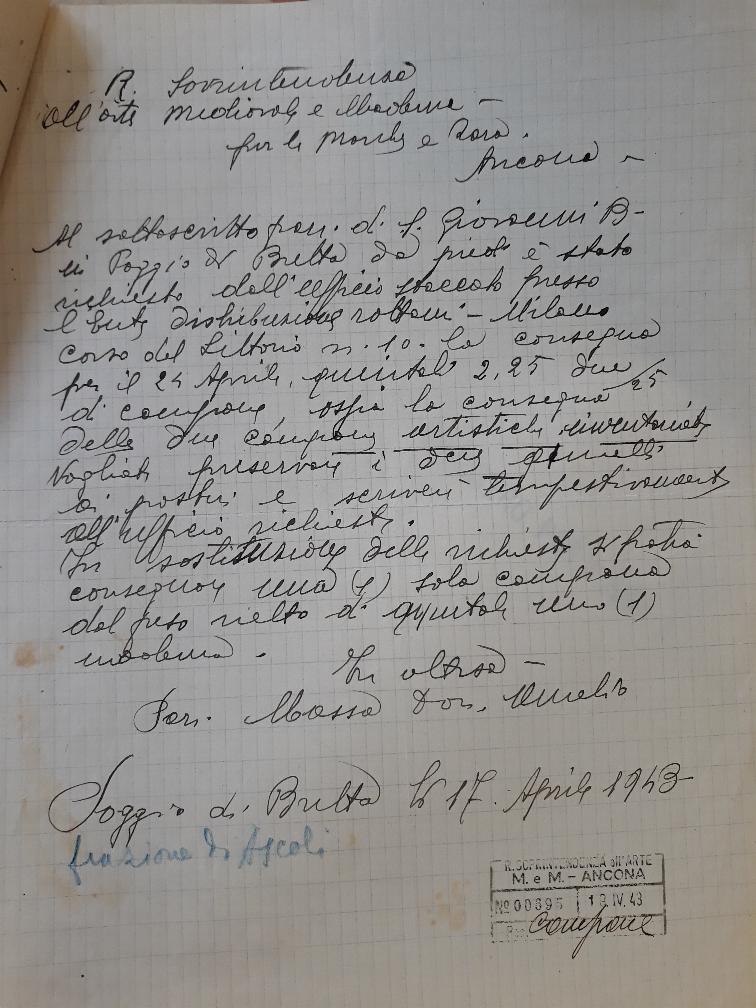 R. Sovrintendenza
all'arte medioevale e Moderna –
per le Marche e Zara.
Ancona –
Al sottoscritto parr. di S. Giovanni B–
in Poggio di Bretta da piedi è stato
richiesto dall'ufficio staccato presso
l'Ente distribuzione rottami – Milano
Corso del Littorio n. 10. la consegna
per il 24 Aprile, quintali 2,25 due /25
di campane, ossia la consegna
delle due campane artistiche inventariate
Vogliate preservare i
ai posteri e scrivere tempestivamente
all'ufficio richieste.
In sostituzione delle richieste si potrà
consegnare una (1) sola campana
dal peso netto di quintale uno (1)
moderna.
In attesa –
Parr. Massa Don. Amelio
Poggio di Bretta li 17. Aprile 1943
frazione di Ascoli
R. SOPRINTENDENZA all'ARTE
M. e M. – ANCONA
No 00695 19. IV. 43
Campane